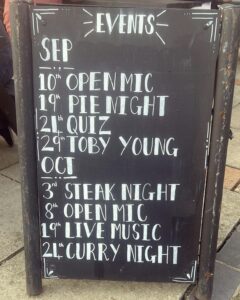 EVENTS
SEP
10th OPEN MIC
19th PIE NIGHT
21th QUIZ
29th TOBY YOUNG
OCT
3rd STEAK NIGHT
8th OPEN MIC
19th LIVE MUSIC
21st CURRY NIGHT